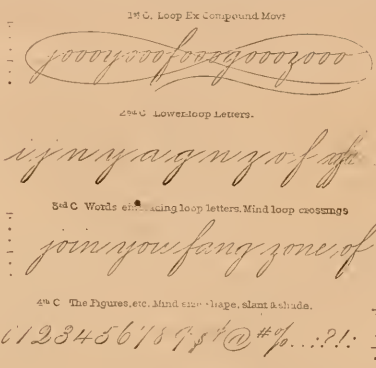 1st C. Loop Ex Compound Movt
joooyooofooogooozooo
2nd C Lower loop Letters.
i j n y a g n z o f
3rd C Words embracing loop letters. Mind loop crossings
join your fang zone of
4th C The Figures, etc. Mind size shape, slant & shade.
1 2 3 4 5 6 7 8 9 $ ? @ # % . . : ? ! :